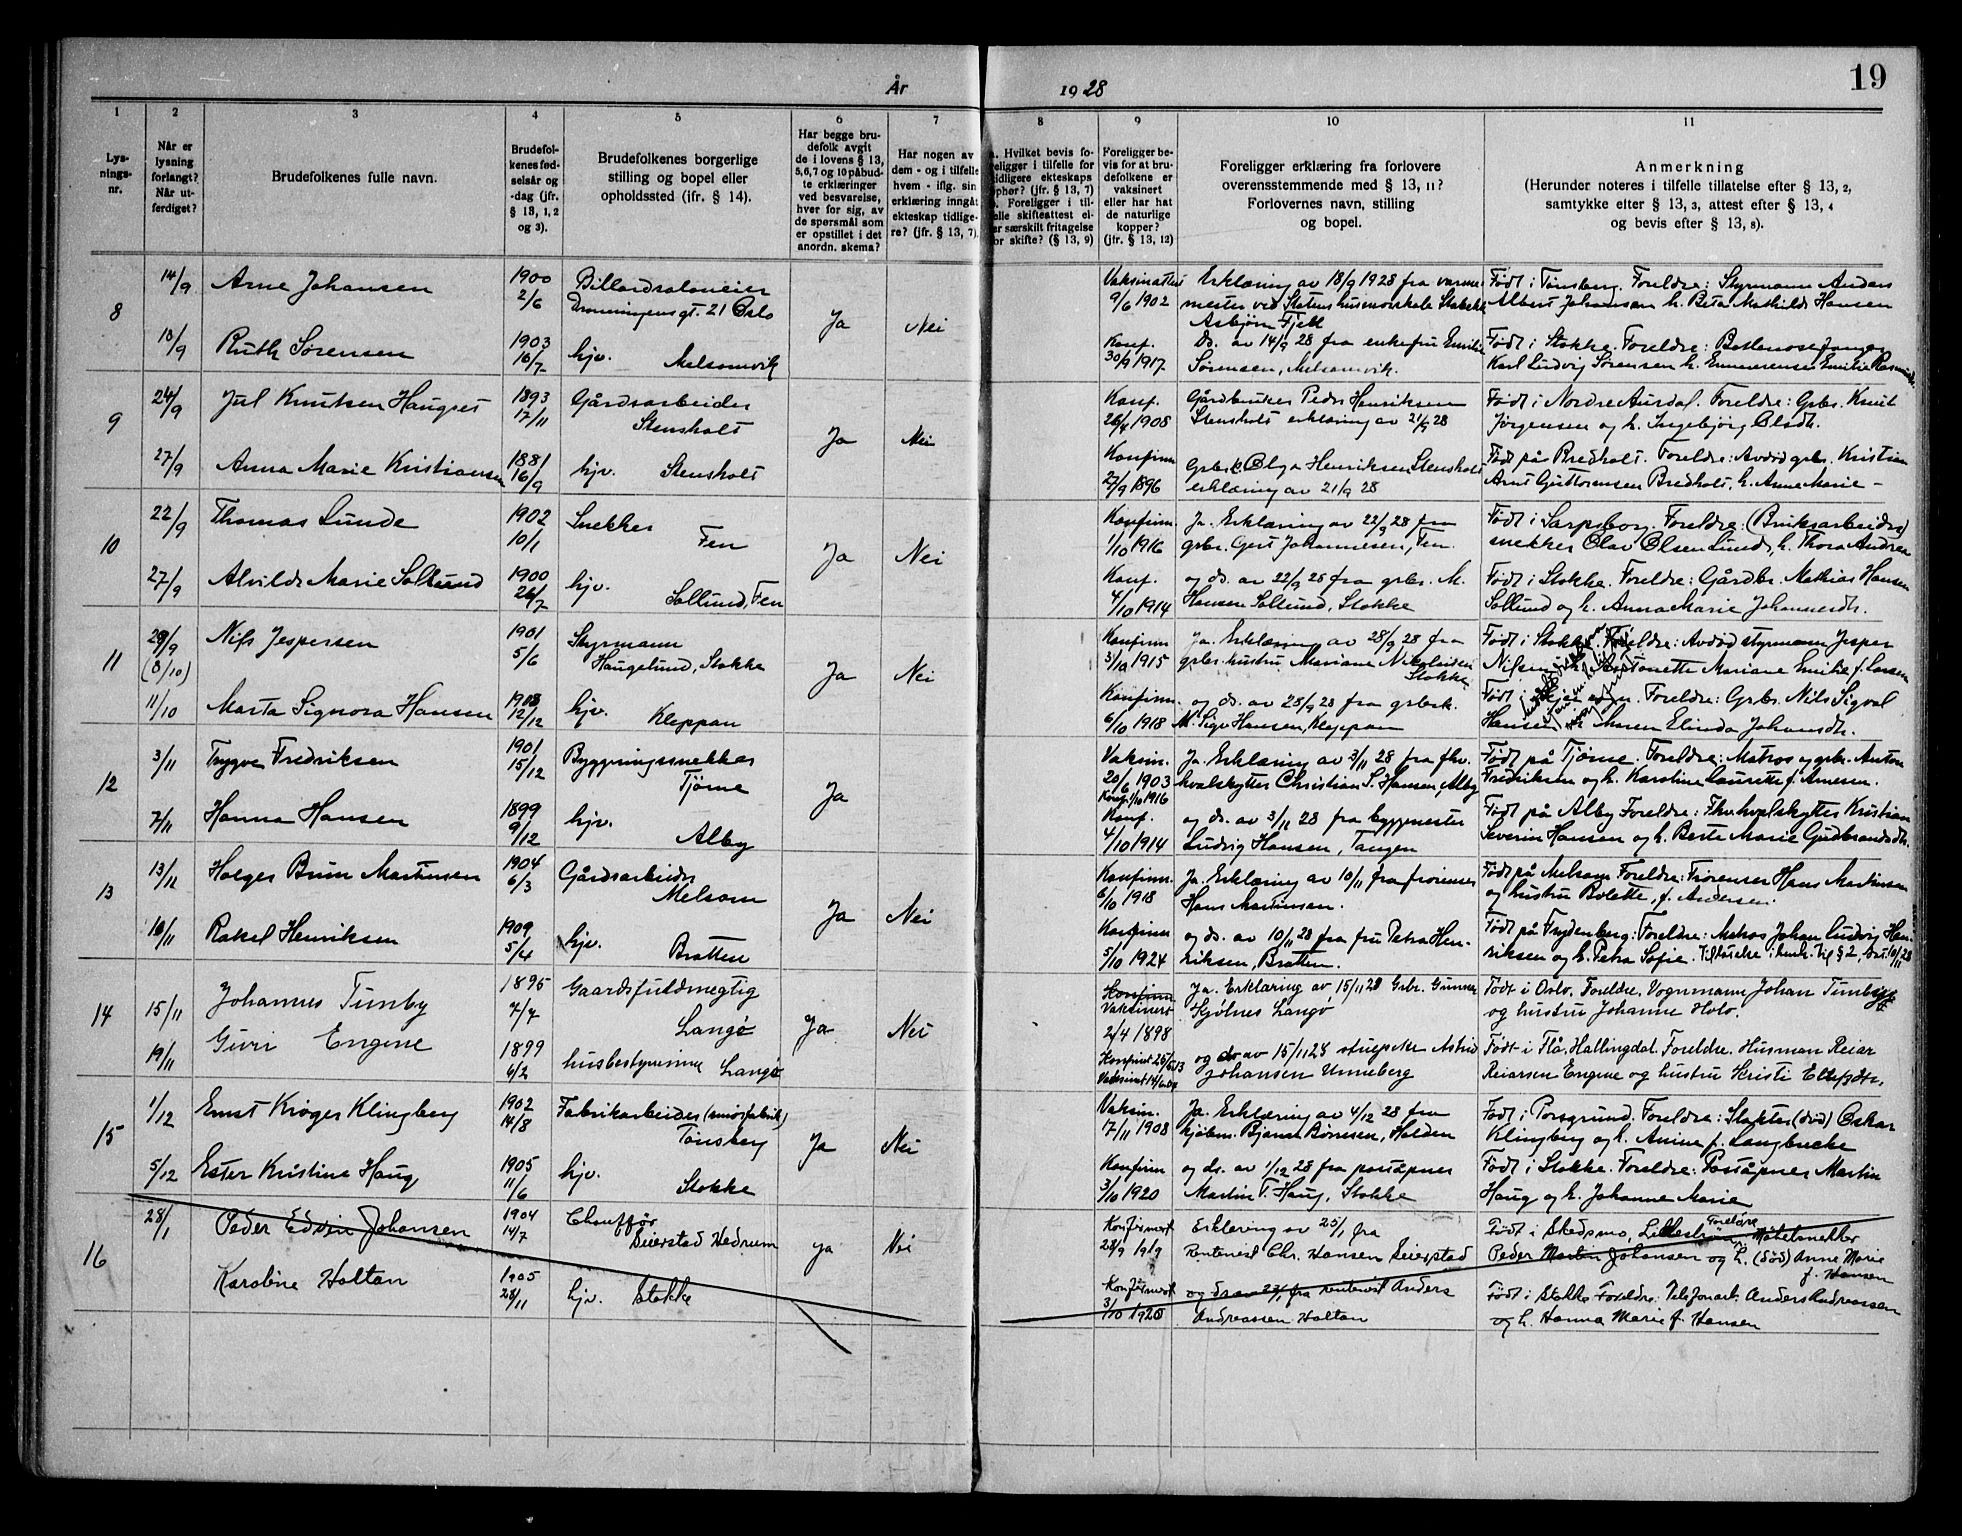 19
År 1928
1 2 3 4 5 6 7 8 9 10 11
Lysningsnr.
Når er lysning forlangt? Når utferdiget?
Brudefolkenes fulle navn.
Brudefolkenes fødselsår og -dag (jfr. § 13, 1, 2 og 3).
Brudefolkenes borgerlige stilling og bopel eller opholdssted (ifr. § 14).
Har begge brudefolk avgit de i lovens § 13, 5,6,7 og 10 påbudte erklæringer ved besvarelse, hver for sig, av de spørsmål som er opstillet i det anordn. skema?
Har nogen av dem - og i tilfelle hvem - iflg. sin erklæring inngåt ekteskap tidligere? (jfr. § 13, 7).
a. Hvilket bevis foreligger i tilfelle for tidligere ekteskaps ophør? (jfr. § 13, 7) Foreligger i tilfelle skifteattest eller særskilt fritagelse for skifte? (§ 13, 9)
Foreligger bevis for at brudefolkene er vaksinert eller har hat de naturlige kopper? (jfr. § 13, 12)
Foreligger erklæring fra forlovere overensstemmende med § 13, 11? Forlovernes navn, stilling og bopel.
Anmerkning (Herunder noteres i tilfelle tillatelse efter § 13, 2, samtykke efter § 13, 3, attest efter § 13, 4 og bevis efter § 13, 8).
8 14/9 Arne Johansen 1900 2/6 Billardsaloneier Dronningensgt. 21 Oslo Ja Nei
9/6 1902 Erklæring av 18/9 1928 fra varmemester ved Statens husmorskole Stabekk Asbjørn Fjell
Født i Tønsberg. Foreldre: Styrmann Anders Albert Johansen h. Berta Mathilde Hansen
18/9 Ruth Sørensen 1903 16/7 hjv. Melsomvik
Konf. 30/9 1917 Do. av 14/9 28 fra enkefru Emilie Sørensen, Melsomvik.
Født i Stokke. Foreldre: Bottenosefanger Karl Ludvig Sørensen h. Emilie
9 24/9 Jul Knutsen Haugset 1893 17/11 Gårdsarbeider Stensholt Ja Nei
Konf. 26/4 1908 Gårdbruker Peder Henriksen Stensholt erklæring av 21/9 28
Født i Nordre Aurdal. Foreldre: Grbr. Knut Jørgensen og h. Ingebjørg Olsdt.
27/9 Anna Marie Kristiansen 1881 16/9 hjv. Stensholt
Konfirm 27/9 1896 Grbrk. Olga Henriksen Stensholt erklæring av 21/9 28
Født på Bredholt. Foreldre: Avdød grbr. Kristian Arnt Guttormsen Bredholt, h. Anne Marie –
10 22/9 Thomas Lunde 1902 10/1 Snekker Fen Ja Nei
Konfirm. 1/10 1916 Ja. Erklæring av 22/9 28 fra grbr. Gert Johannesen, Fen.
Født i Sarpsborg. Foreldre: (Bruksarbeider) snekker Olav Olsen Lunde, h. Thora Andrea
27/9 Alvilde Marie Sollund 1900 26/7 hjv. Sollund, Fen
Konf. 4/10 1914 og do. av 22/9 28 fra grbr. M. Hansen Sollund, Stokke
Født i Stokke. Foreldre: Gårdbr. Mathias Hansen Sollund og h. Anna Marie Johannesdt.
11 29/9 (8/10) Nils Jespersen 1901 5/6 Styrmann Haugelund, Stokke Ja Nei
Konfirm 3/10 1915 Ja. Erklæring av 28/9 28 fra grbr. hustru Mariane Nikolaisen Stokke
Født i Stokke. Foreldre: Avdød styrmann Jesper Nilsen h. Antonette Mariane Emilie f. Larsen
11/10 Marta Signora Hansen 1903 12/12 hjv. Kleppan
Konfirm. 6/10 1918 og do. av 28/9 28 fra grbrk. M. Sigv Hansen, Kleppan
Født i Foreldre: Grbr. Nils Sigval Hansen h. Maren Elinda Johansdt.
12 3/11 Trygve Fredriksen 1901 15/12 Bygningssnekker Tjøme Ja
Vaksin. 20/6 1903 Konf. 1/10 1916 Ja. Erklæring av 3/11 28 fra fhv. hvalskytter Christian S. Hansen, Alby
Født på Tjøme. Foreldre: Matros og grbr. Anton Fredriksen og h. Karoline Laurette f. Arnesen.
7/11 Hanna Hansen 1899 9/12 hjv. Alby
Konf. 4/10 1914 og do. av 3/11 28 fra byggmester Ludvig Hansen, Tangen
Født på Alby Foreldre: Fhv. hvalskytter Kristian Severin Hansen og h. Berte Marie Gudbrandsdt.
13 13/11 Holger Brun Martinsen 1904 6/3 Gårdsarbeider Melsom Ja Nei
Konfirm. 6/10 1918 Ja. Erklæring av 10/11 fra frørenser Hans Martinsen.
Født på Melsom Foreldre: Frørenser Hans Martinsen og hustru Bolette, f. Andersen.
16/11 Rakel Henriksen 1909 5/4 hjv. Bratten
Konfirm 5/10 1924 og do. av 10/11 28 fra fru Petra Henriksen, Bratten.
Født på Frydenberg: Foreldre: Matros Johan Ludvig Henriksen og h. Petra Sofie. 10/11 28
14 15/11 Johannes Timby 1895 7/7 Gaardsfuldmegtig Langø Ja Nei
Konfirm Vaksinert 2/4 1898 Ja. Erklæring av 15/11 28 Grbr. Gunnar Kjølnes Langø
Født i Oslo, Foreldre, Vognmann Johan Timby og hustru Johanne Holo.
19/11 Guri Engene 1899 6/2 husbestyrerinne Langø
og do av 15/11 28 stuepike Astrid Johansen Unneberg
Født i Flå, Hallingdal. Foreldre. Husman Reiar Reiarsen Engene og hustru Kristi
15 1/12 Ernst Krøger Klingberg 1902 14/8 Fabrikarbeider (smørfabrik) Tønsberg Ja Nei
Vaksin. 17/11 1908 Ja. Erklæring av 4/12 28 fra kjøbm. Bjarne Børresen, Halden
Født i Porsgrund. Foreldre: Slakter (død) Oskar Klingberg og h. Anine f. Langbucke
5/12 Ester Kristine Haug 1905 11/6 hjv. Stokke
Konfirm 3/10 1920 og do. av 1/12 28 fra poståpner Martin T. Haug, Stokke
Født i Stokke. Foreldre: Poståpner Martin Haug og h. Johanne Marie
16 28/1 Peder Edvin Johansen 1904 14/7 Chauffør Seierstad Hedrum Ja Nei
Konfirmert 28/9 1919 Erklering av 25/1 fra Rentenist Chr. Hansen Seierstad
Født i Skedsmo, Lillestrøm, Foreldre Møbelsnekker Peder Martin Johansen og h. (død) Anne Marie f. Hansen
Karoline Holtan 1905 28/11 hjv. Stokke
Konfirmert 3/10 1920 og do av 27/1 fra rentenist Anders Andreassen Holtan
Født i Stokke Foreldre: Telefonarb. Anders Andreassen og h. Hanna Marie f. Hansen